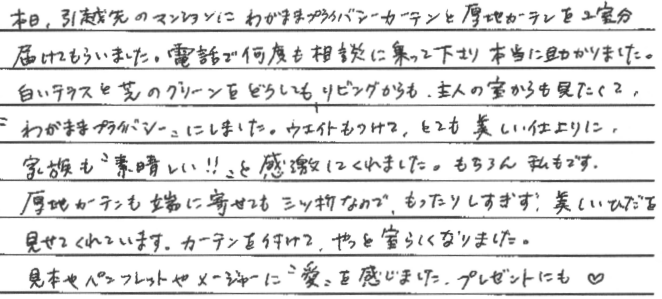 本日、引越先のマンションに わがままプライバシーカーテンと厚地カーテンを2室分
届けてもらいました。電話で何度も相談に乗って下さり 本当に助かりました。
白いテラスと芝のグリーンをどうしてもリビングからも、主人の室からも見たくて、
"わがままプライバシー"にしました。ウエイトもつけて、とても美しい仕上りに、
家族も"素晴しい!!"と感激してくれました。もちろん私もです。
厚地カーテンも端に寄せても三ツ物なので、もったりしすぎず、美しいひだを
見せてくれています。カーテンを付けて、やっと室らしくなりました。
見本やパンフレットやメージャーに"愛"を感じました。プレゼントにも♡